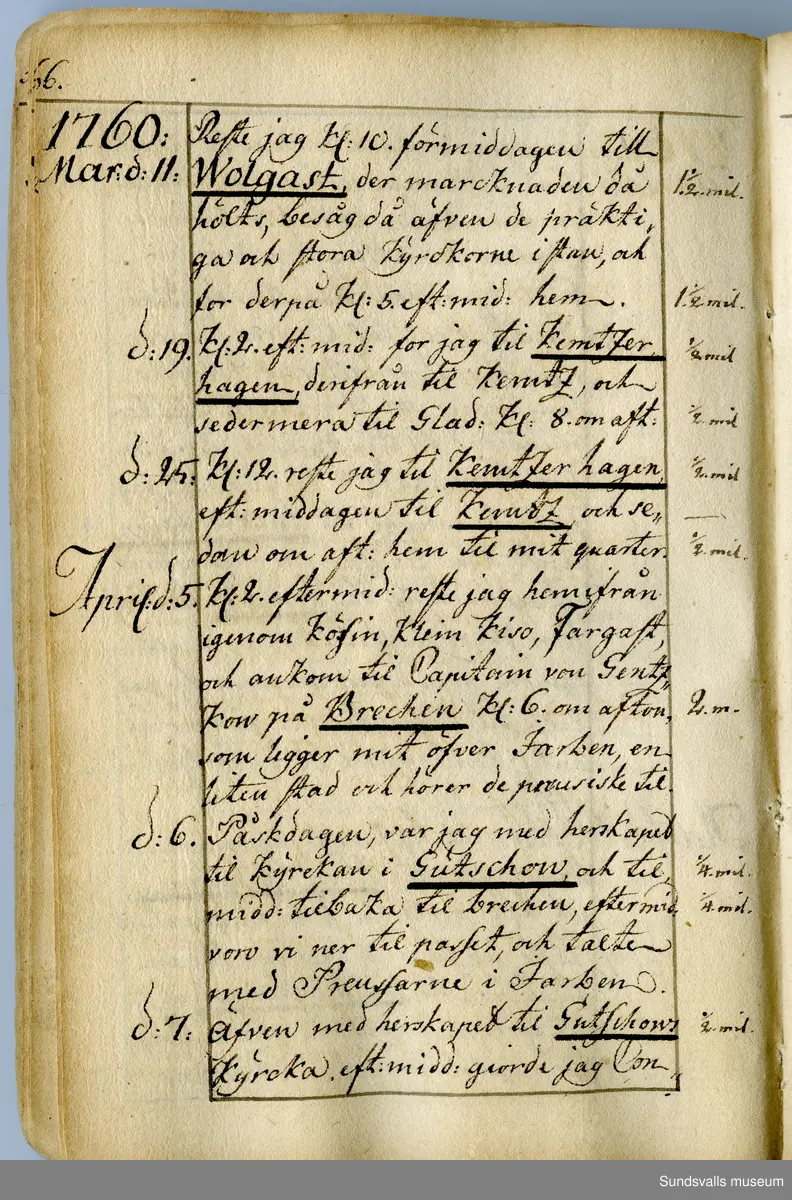 56.
1760: Reste jag Kl: 10. förmiddagen till
Mar: d: 11: Wolgast, der marcknaden då 1 1/2. mil.
hölts, besåg då äfven de präkti,
ga och stora Kÿrckorne i stan, och
for derpå Kl: 5. eft: mid: hem. 1 1/2 mil.
d: 19. Kl: 2. eft: mid: for jag til Kemtzer 1/2 mil
hagen, derifrån til Kemtz, och
sedermera til Glad: Kl: 8. om aft: 1/2 mil
d: 25: Kl: 12. reste jag til Kemtzer hagen, 1/2 mil
eft: middagen til Kemtz, och se,, —
dan om aft: hem til mit quarter. 1/2. mil.
April: d: 5. Kl: 2. eftermid: reste jag hemifrån
igenom Kösin, Klein Kiso, Targast,
och ankom til Capitain von Gentz,,
kow på Brechen Kl: 6. om afton, 2. m.
som ligger mit öfver Jarben, en
liten stad och hörer de preusiske til.
d: 6. Påskdagen, var jag med herskapet
til Kÿrckan i Gutschow, och til 1/4. mil.
midd: tilbaka til brechen, eftermid. 1/4. mil.
voro vi ner til passet, och talte
med Preussarne i Jarben.
d: 7: Äfven med herskapet til Gutschows 1/2. mil.
Kÿrcka. eft: midd: giorde jag Con,,
Sundsvalls museum